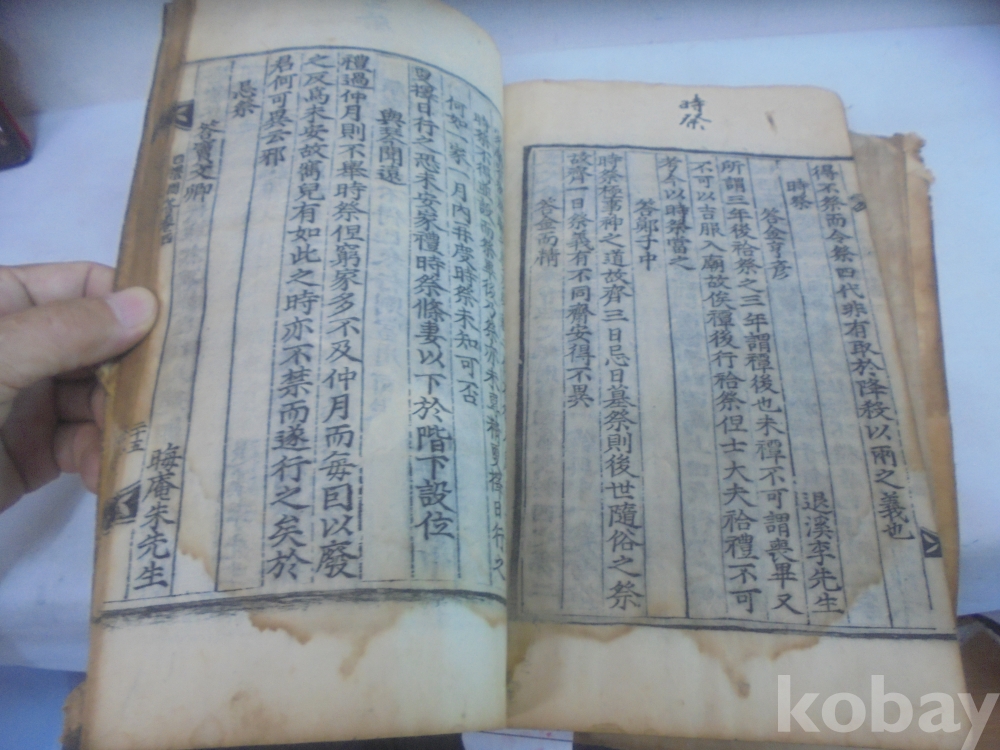 時祭
得不祭而今祭四代非有取於降殺以兩之義也
時祭
退溪李先生
答金亨彦
所謂三年後祫祭之三年謂禫後也未禫不可謂喪畢又
不可以吉服入廟故俟禫後行祫祭但士大夫祫禮不可
考今以時祭當之
答鄭子中
時祭極事神之道故齊三日忌日墓祭則後世隨俗之祭
故齊一日祭義有不同齊安得不異
答金而精
何如一家一月內再度時祭未知可否
更擇日行之恐未安家禮時祭條妻以下於階下設位
與琴聞遠
禮過仲月則不擧時祭但窮家多不及仲月而每回以廢
之反爲未安故寓兒有如此之時亦不禁而遂行之矣於
君何可異云邪
忌祭
晦庵朱先生
答竇文卿
二十五
kobay